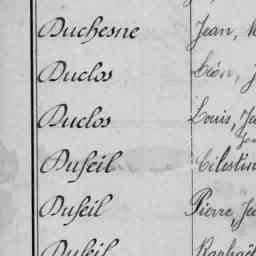 Duchesne Jean,
Duclos Léon, J
Duclos Louis, Je
Dufeil Célestin
Dufeil Pierre, Je
Dufeil Raphaël